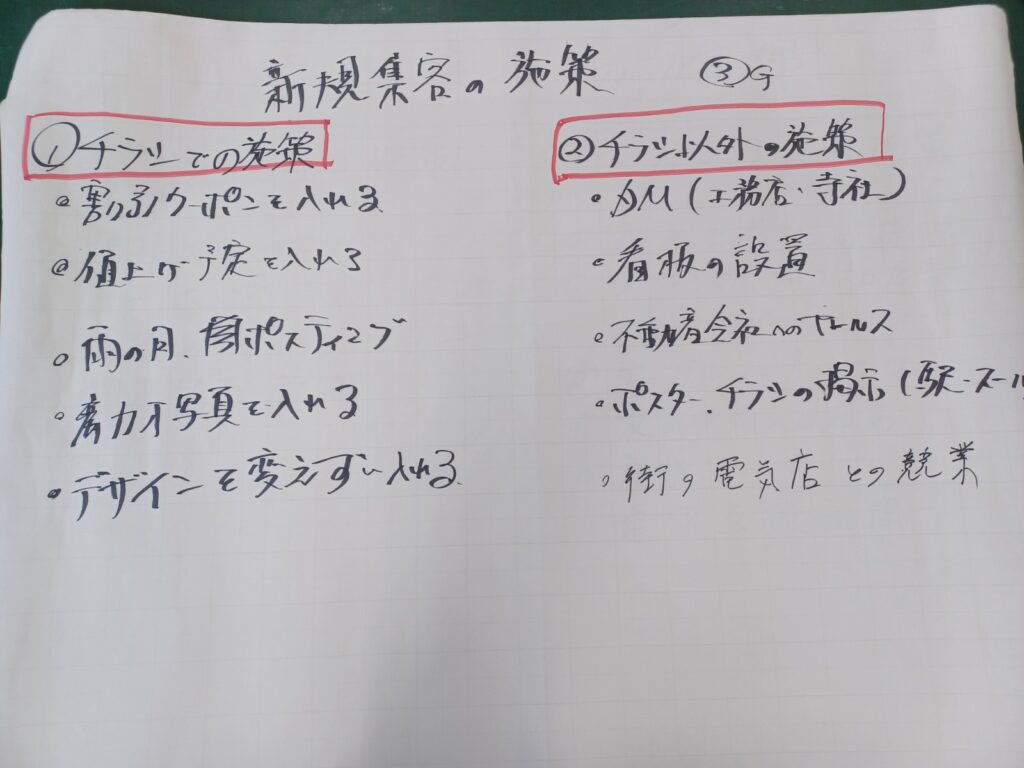 新規集客の施策 ③G
①チラシでの施策
・割引クーポンを入れる
・値上げ予定を入れる
・雨の月、ポスティング
・魅力才写真を入れる
・デザインを変えずに入れる
②チラシ以外の施策
・DM(工務店・寺社)
・看板の設置
・不動産会社へのセールス
・ポスター、チラシの掲示(駅・スーパ
・街の電気店との競業